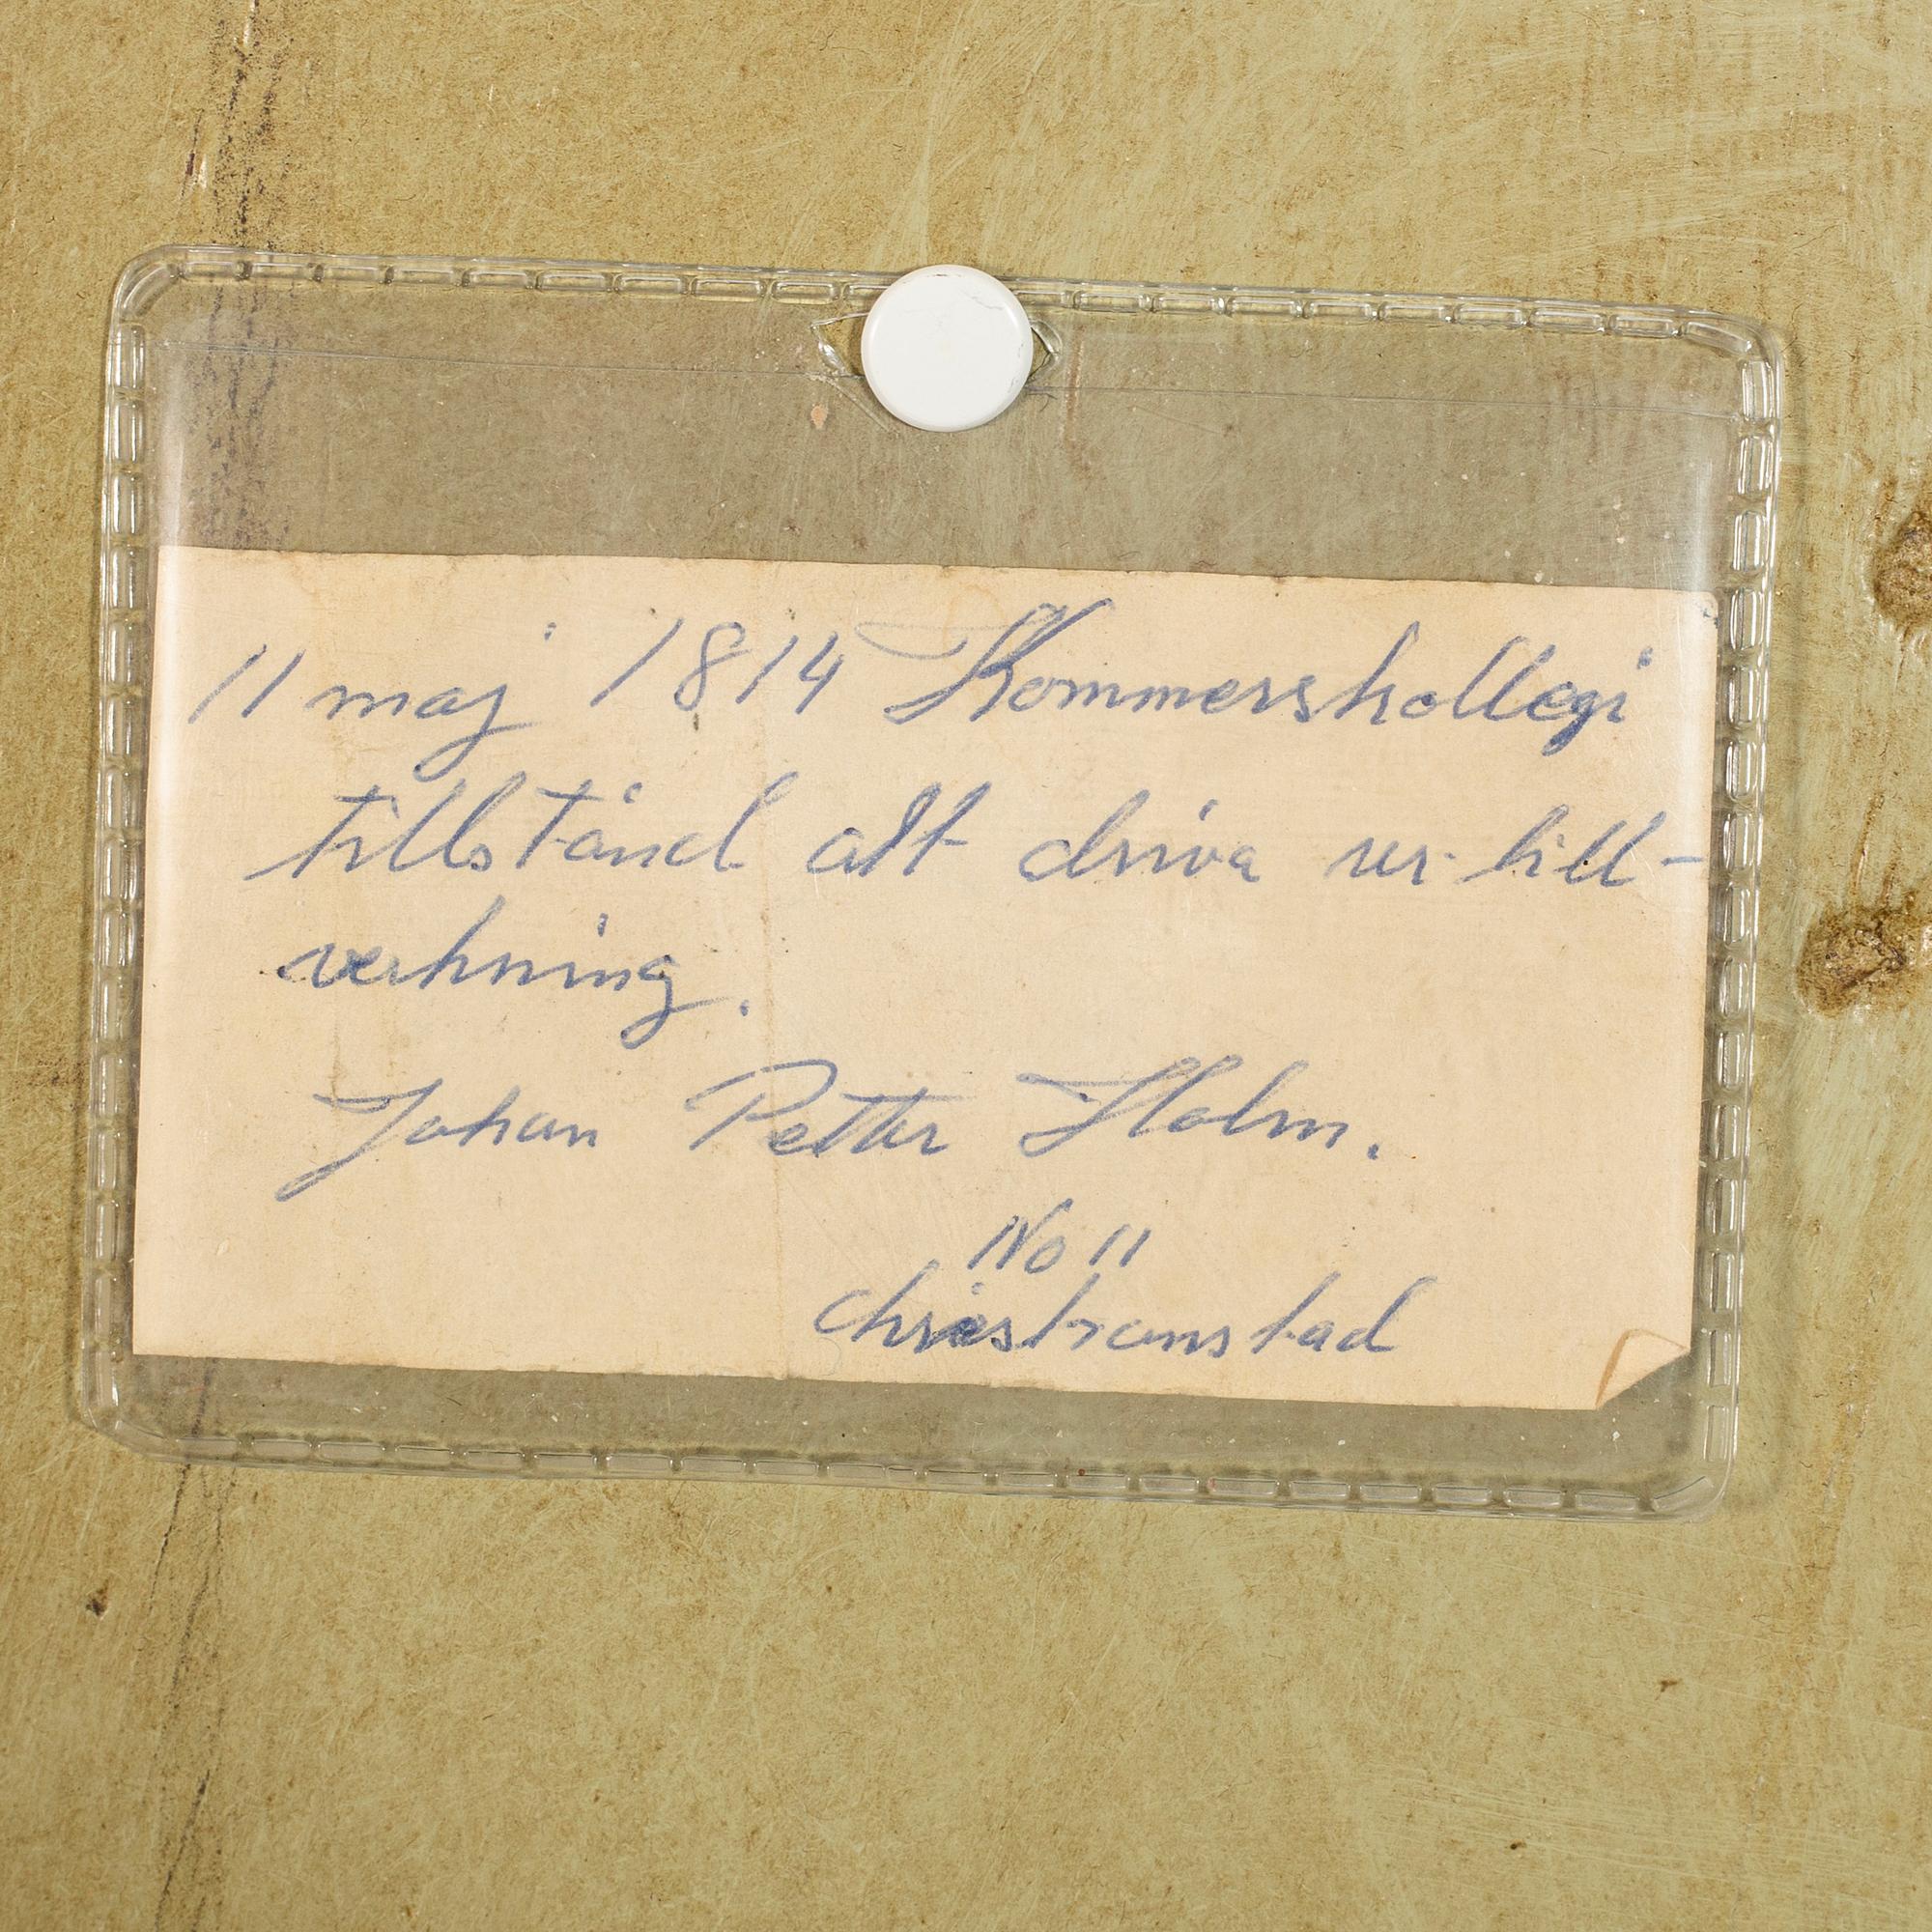 11 maj 1814 Kommerskollegi
tillstånd att driva ur-till-
verkning.
Johan Petter Holm.
No 11
christianstad